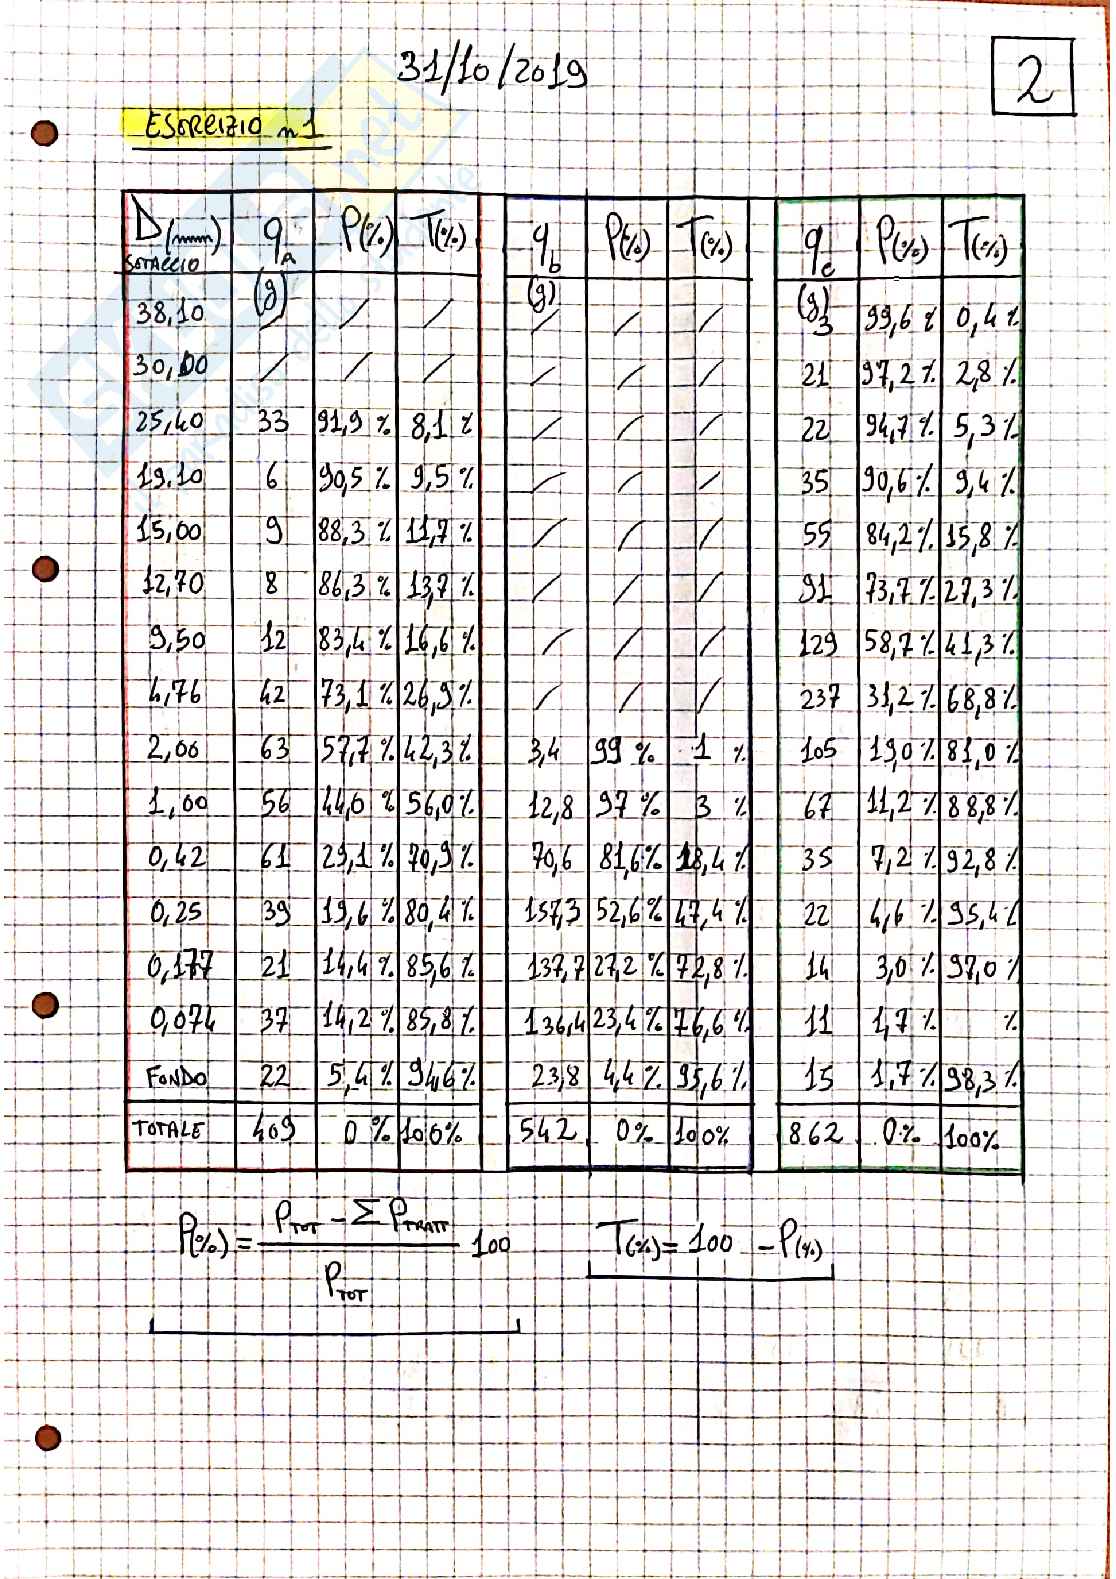 31/10/2019
2
ESERCIZIO n 1
D(mm) SETACCIO qA (g) P(%) T(%) qb (g) P(%) T(%) qc (g) P(%) T(%)
38,10 / / / / / / 3 99,6 % 0,4 %
30,00 / / / / / / 21 97,2 % 2,8 %
25,40 33 91,9 % 8,1 % / / / 22 94,7 % 5,3 %
19.10 6 90,5 % 9,5 % / / / 35 90,6 % 9,4 %
15,00 9 88,3 % 11,7 % / / / 55 84,2 % 15,8 %
12,70 8 86,3 % 13,7 % / / / 91 73,7 % 27,3 %
9,50 12 83,4 % 16,6 % / / / 129 58,7 % 41,3 %
4,76 42 73,1 % 26,9 % / / / 237 31,2 % 68,8 %
2,00 63 57,7 % 42,3 % 3,4 99 % 1 % 105 19,0 % 81,0 %
1,00 56 44,0 % 56,0 % 12,8 97 % 3 % 67 11,2 % 88,8 %
0,42 61 29,1 % 70,9 % 70,6 81,6 % 18,4 % 35 7,2 % 92,8 %
0,25 39 19,6 % 80,4 % 157,3 52,6 % 47,4 % 22 4,6 % 95,4 %
0,177 21 14,4 % 85,6 % 137,7 27,2 % 72,8 % 14 3,0 % 97,0 %
0,074 37 14,2 % 85,8 % 136,4 23,4 % 76,6 % 11 1,7 % %
FONDO 22 5,4 % 94,6 % 23,8 4,4 % 95,6 % 15 1,7 % 98,3 %
TOTALE 409 0 % 100% 542 0% 100% 862 0% 100%
P(%) = (PTOT - Σ PTRATT) / PTOT 100
T(%) = 100 - P(%)